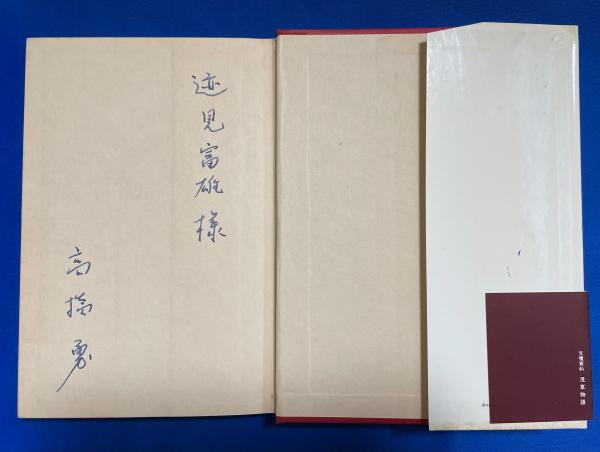 迹見富雄様
高橋勇
文壇資料 浅草物語